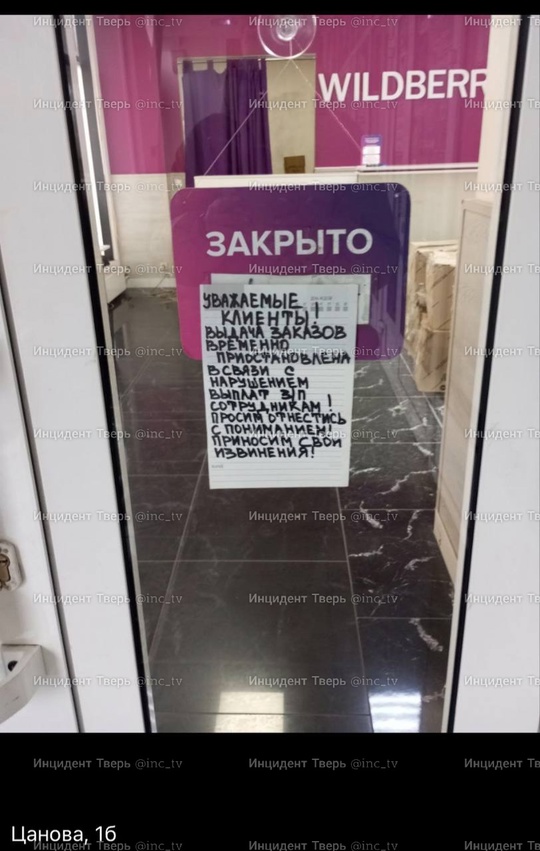 WILDBERR
ЗАКРЫТО
УВАЖАЕМЫЕ
КЛИЕНТЫ!
ВЫДАЧА ЗАКАЗОВ
ВРЕМЕННО
ПРИОСТАНОВЛЕНА
В СВЯЗИ С
НАРУШЕНИЕМ
ВЫПЛАТ З/П
СОТРУДНИКАМ!
ПРОСИМ ОТНЕСТИСЬ
С ПОНИМАНИЕМ!
ПРИНОСИМ СВОИ
ИЗВИНЕНИЯ!
Цанова, 1б
Инцидент Тверь @inc_tv